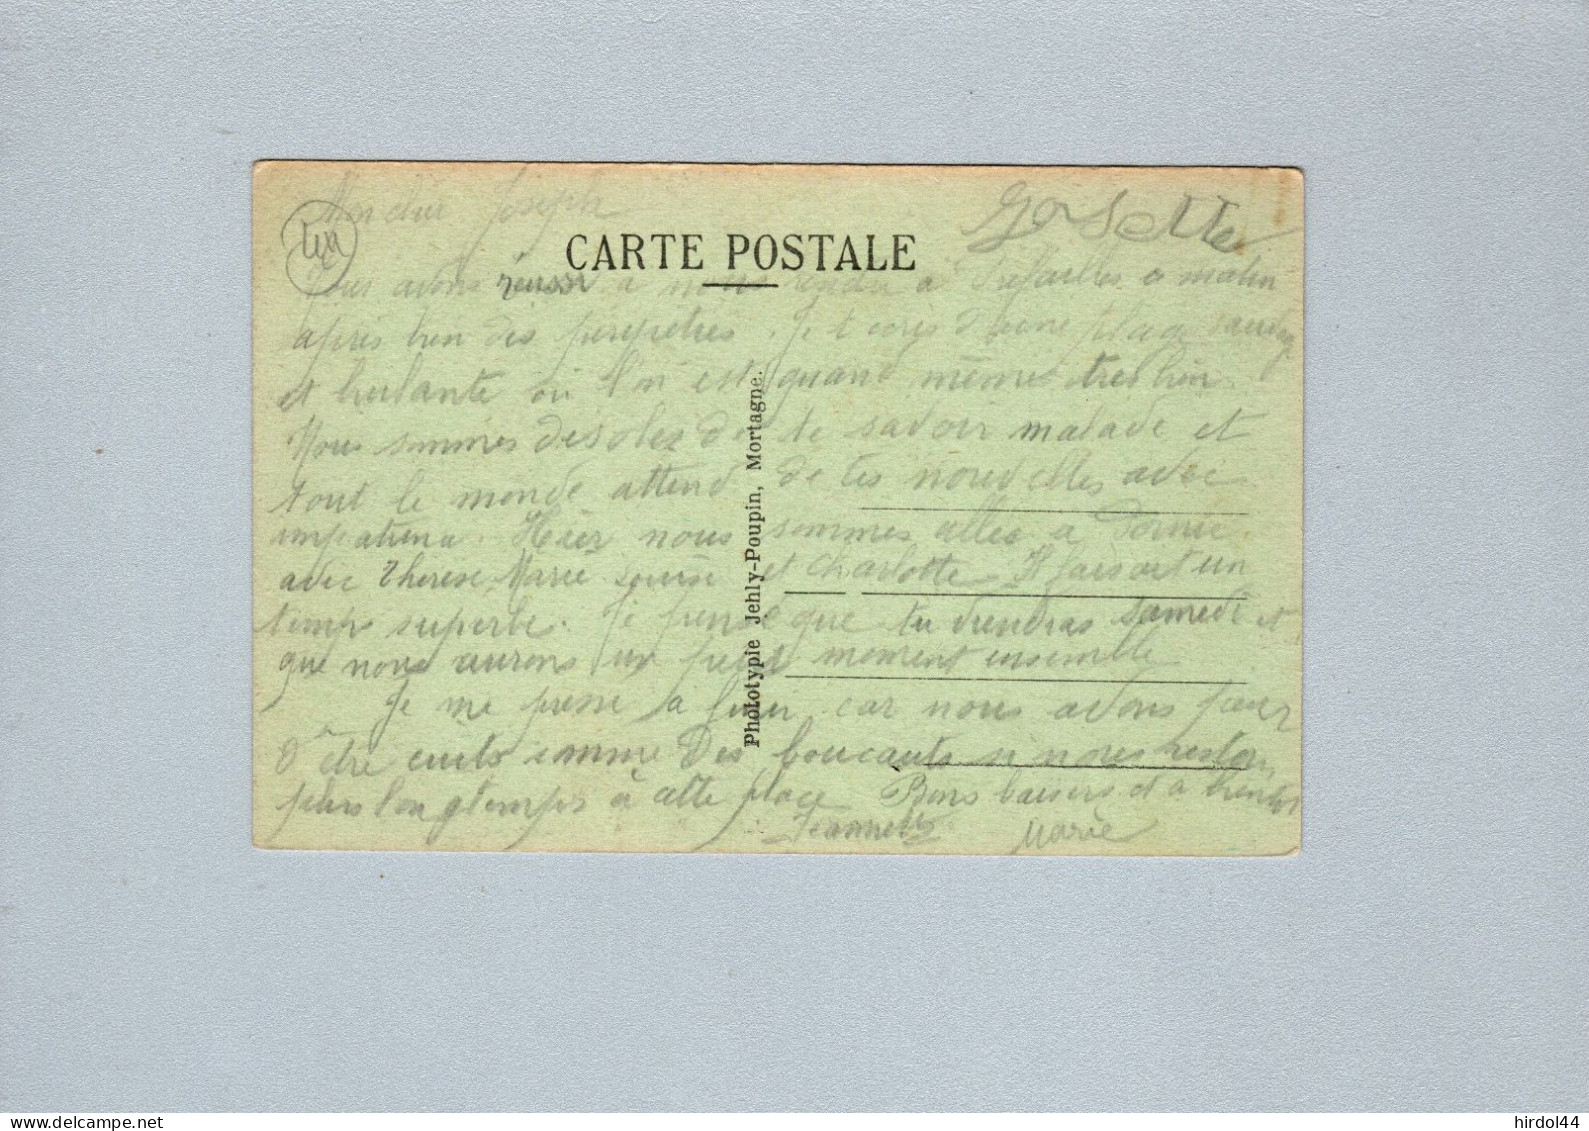 Mon cher Joseph
CARTE POSTALE
Nous avons réussi à nous rendre à Préfailles ce matin
après bien des péripéties. Je t'écris d'une plage sauvage
et brulante où l'on est quand même très bien.
Nous sommes désolés de te savoir malade et
tout le monde attend de tes nouvelles avec
impatience. Hier nous sommes allés à Pornic
avec Therese, Marie Louise et Charlotte. Il faisait un
temps superbe. Je pense que tu viendras samedi et
que nous aurons un petit moment ensemble
Je me presse à finir car nous avons peur
d'être cuits comme des boucauts si nous restons
plus longtemps à cette place. Bons baisers et à bientôt
Jeannette Marie
Phototypie Jehly-Poupin, Mortagne.
delcampe.net
hirdol44